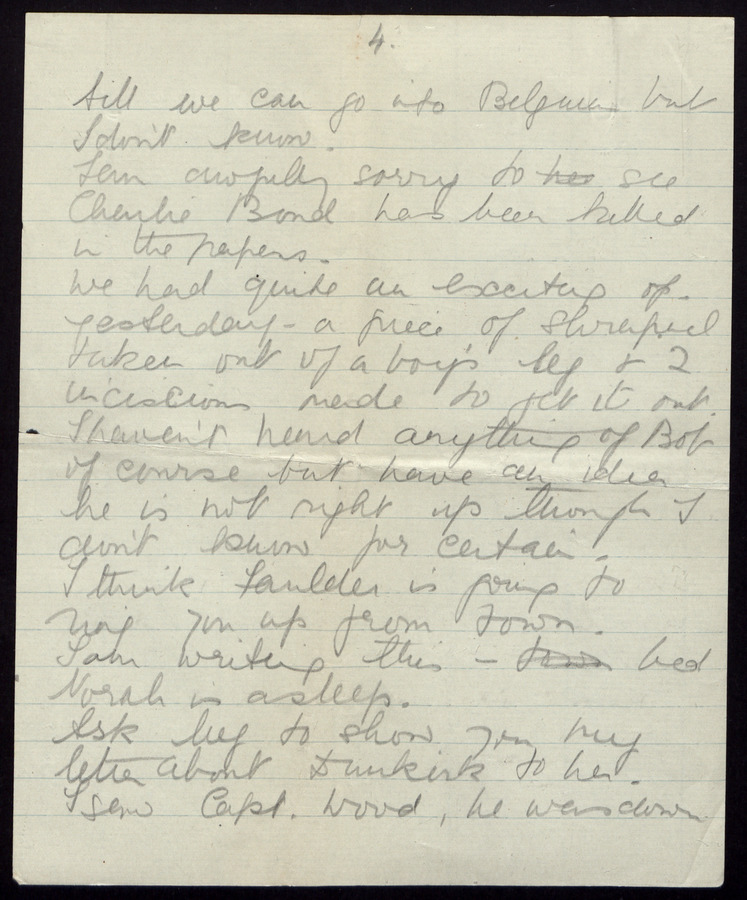 4.
till we can go into Belgium but
I don't know.
I am awfully sorry to see
Charlie Bond has been killed
in the papers.
We had quite an exciting op.
yesterday - a piece of shrapnel
taken out of a boy's leg & 2
inciscions made to get it out.
I haven't heard anything of Bob
of course but have an idea
he is not right up though I
don't know for certain.
I think is going to
ring you up from town.
I am writing this - bed
Norah is asleep.
Ask to show you my
letter about Dunkirk to her.
I saw Capt. Wood, he was down